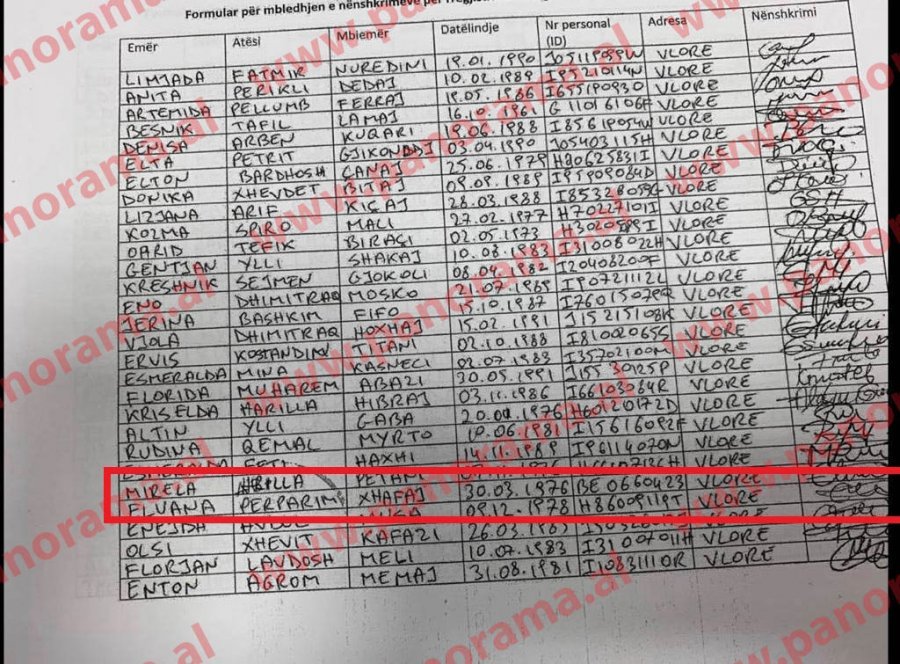 Formular për mbledhjen e nënshkrimeve për
Emër Atësi Mbiemër Datëlindje Nr personal (ID) Adresa Nënshkrimi
LIMJADA FATMIR NUREDINI 19.01.1990 J05119099W VLORE
ANITA PERIKLI DEDAJ 10.02.1989 I95210114N VLORE
ARTEMIDA PELLUMB FERRAJ 19.05.1986 I65519093O VLORE
BESNIK TAFIL LAMAJ 16.10.1961 G11016106H VLORE
DENISA ARBEN KUQARI 19.06.1988 I85619054W VLORE
ELTA PETRIT GJIKONDAJ 03.04.1990 J05403115H VLORE
ELTON BARDHOSH ÇANAJ 25.06.1979 H90625831I VLORE
DONIKA XHEVDET BITAJ 09.09.1989 I95909084D VLORE
LIZJANA ARIF KIÇAJ 28.03.1988 VLORE
KOZMA SPIRO MALI 27.02.1977 H70227101I VLORE
QARID TEFIK BIRAÇI 02.05.1973 VLORE
GENTJAN YLLI SHAKAJ 10.08.1983 I31008022H VLORE
KRESHNIK SEJMEN GJOKOLI 08.04.1982 I20408200F VLORE
ENO DHIMITRAQ MOSKO 21.07.1989 I90721112L VLORE
JERINA BASHKIM FIFO 15.10.1987 VLORE
VJOLA DHIMITRAQ HOXHAJ 15.02.1991 J15215108K VLORE
ERVIS KOSTANDIN TITANI 02.10.1988 I81002065S VLORE
ESMERALDA MINA KASNECI 02.07.1983 I35702100M VLORE
FLORIDA MUHAREM ABAZI 30.05.1991 J15530125P VLORE
KRISELDA HARILLA HIBRAJ 03.11.1986 I66103084R VLORE
ALTIN YLLI GABA H60120172D VLORE
RUDINA QEMAL MYRTO 10.06.1981 I15616092F VLORE
ESMERALDA HAXHI 14.11.1989 I96114070N VLORE
MIRELA PETANI
PERPARIM XHAFAJ 30.03.1976 BE 0660423 VLORE
ENEJDA 09.12.1978 H86009119T VLORE
OLSI XHEVIT KAFAZI 26.03.1983 VLORE
FLORJAN LAVDOSH MELI 10.07.1983 I31007011H VLORE
ENTON AGROM MEMAJ 31.08.1981 I10831110R VLORE
www.panorama.al